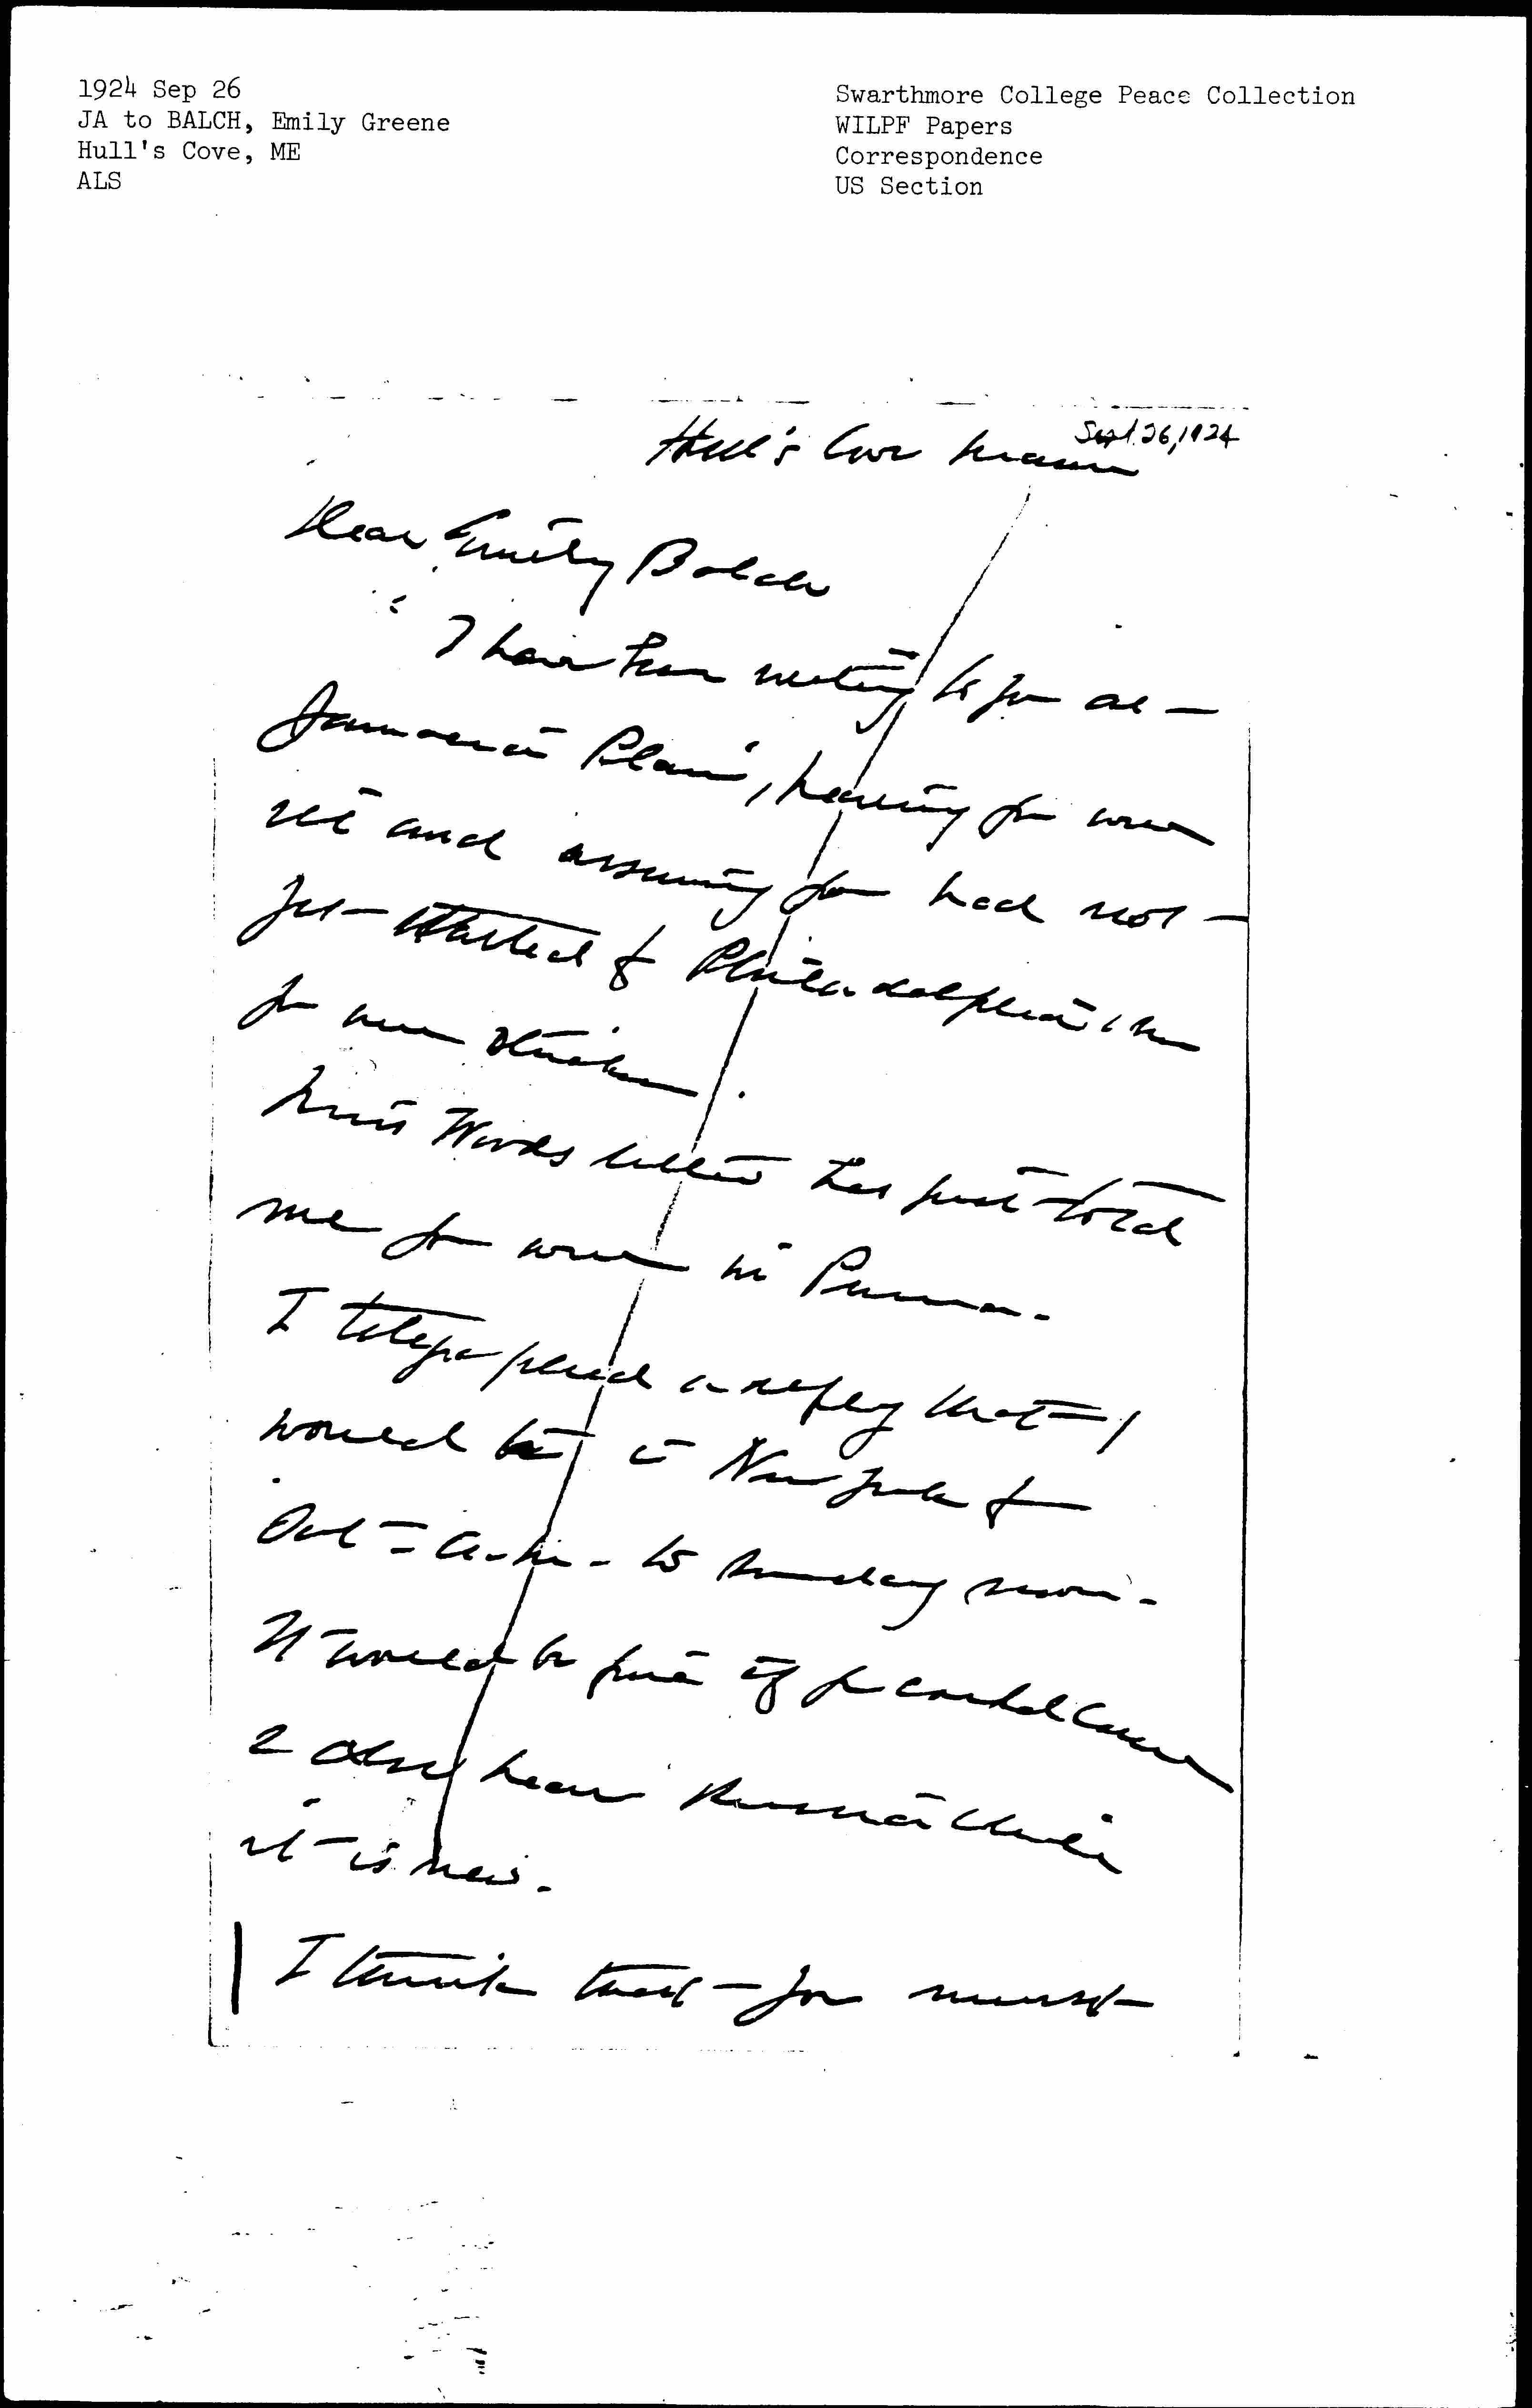 1924 Sep 26
JA to BALCH, Emily Greene
Hull's Cove, ME
ALS
Swarthmore College Peace Collection
WILPF Papers
Correspondence
US Section
Sept. 26, 1924
Hull's Cove Maine
Dear Emily Balch
I have been writing to you at
Jamaica Plain, hearing you were
ill and assuming you had not
yet started for Philadelphia when
you were stricken.
Miss Woods letter has just told
me you were in Penna.
I telegraphed a reply that I
would be in New York
Oct = a.m. to Sunday noon.
It would be fine if you could come
& also have Miss
it is here.
I think that you must